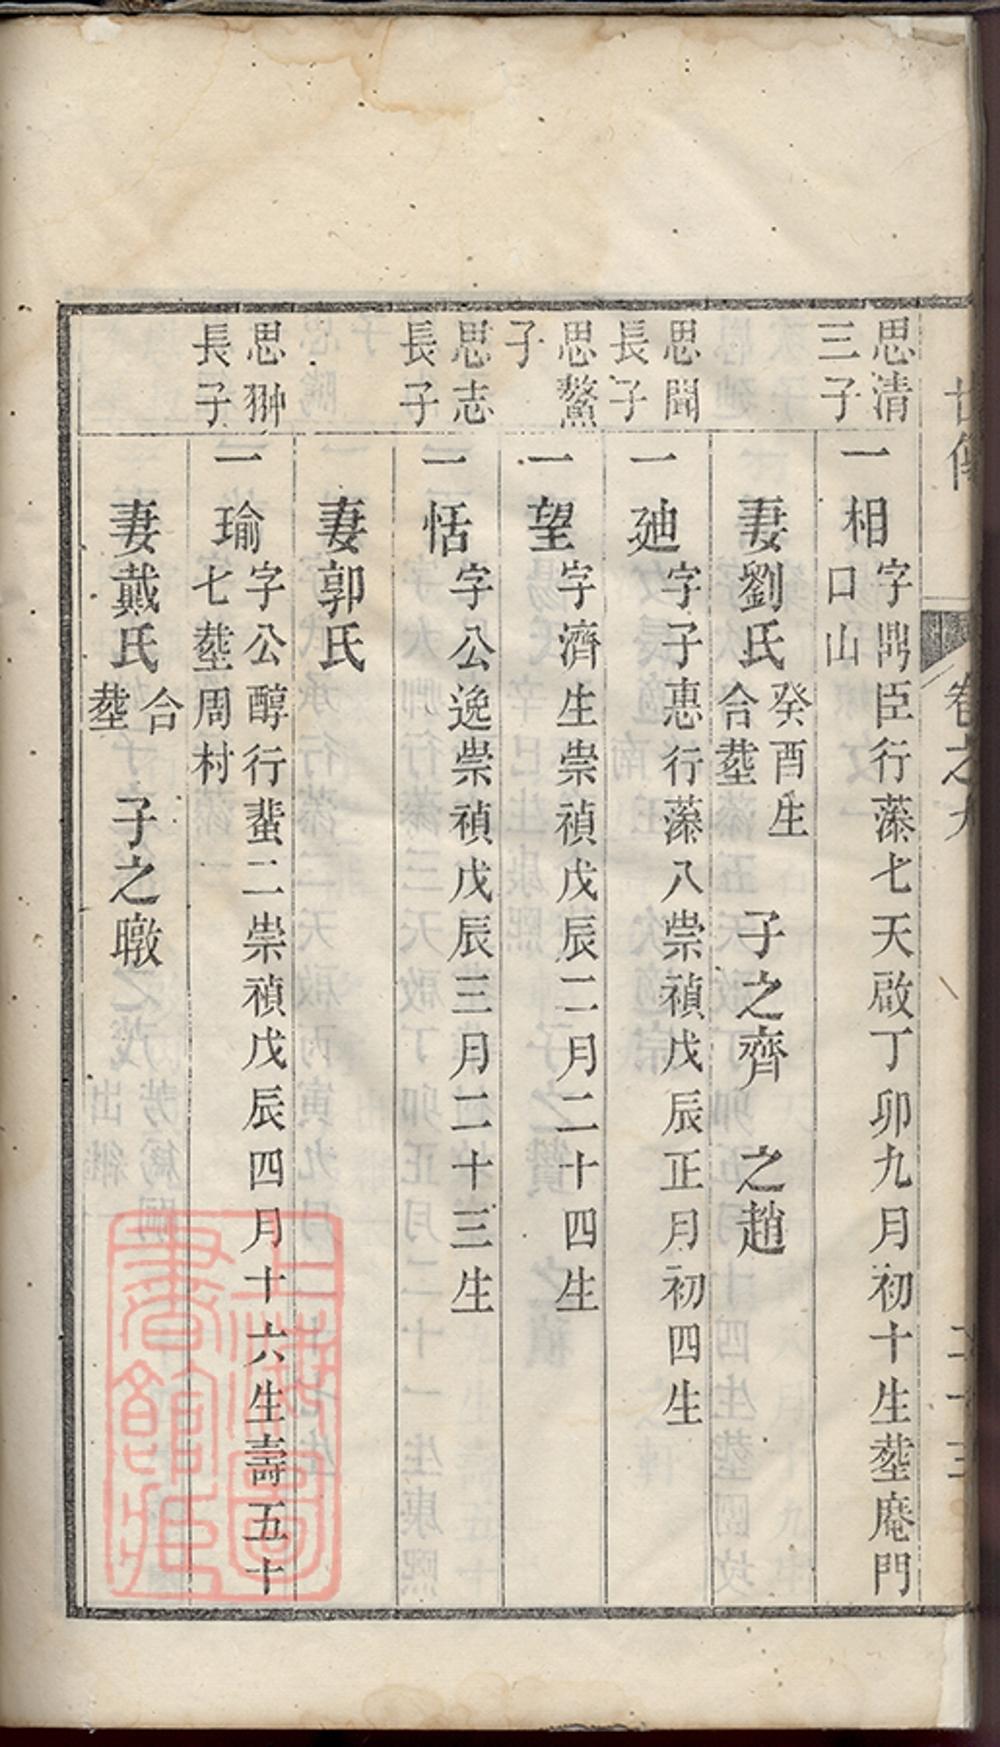 世傳 卷之九 二十三
思清
三子
一相
字鼎臣行藻七天啟丁卯九月初十生塟庵門
口山
妻劉氏
癸酉生
合塟
子之齊 之趙
思聞
長子
一廸
字子惠行藻八崇禎戊辰正月初四生
思鰲
子
一望
字濟生崇禎戊辰二月二十四生
思志
長子
一恬
字公逸崇禎戊辰三月二十三生
妻郭氏
思翀
長子
一瑜
字公醇行蜚二崇禎戊辰四月十六生壽五十
七塟周村
妻戴氏
合
塟
子之暾
上海圖
書館藏